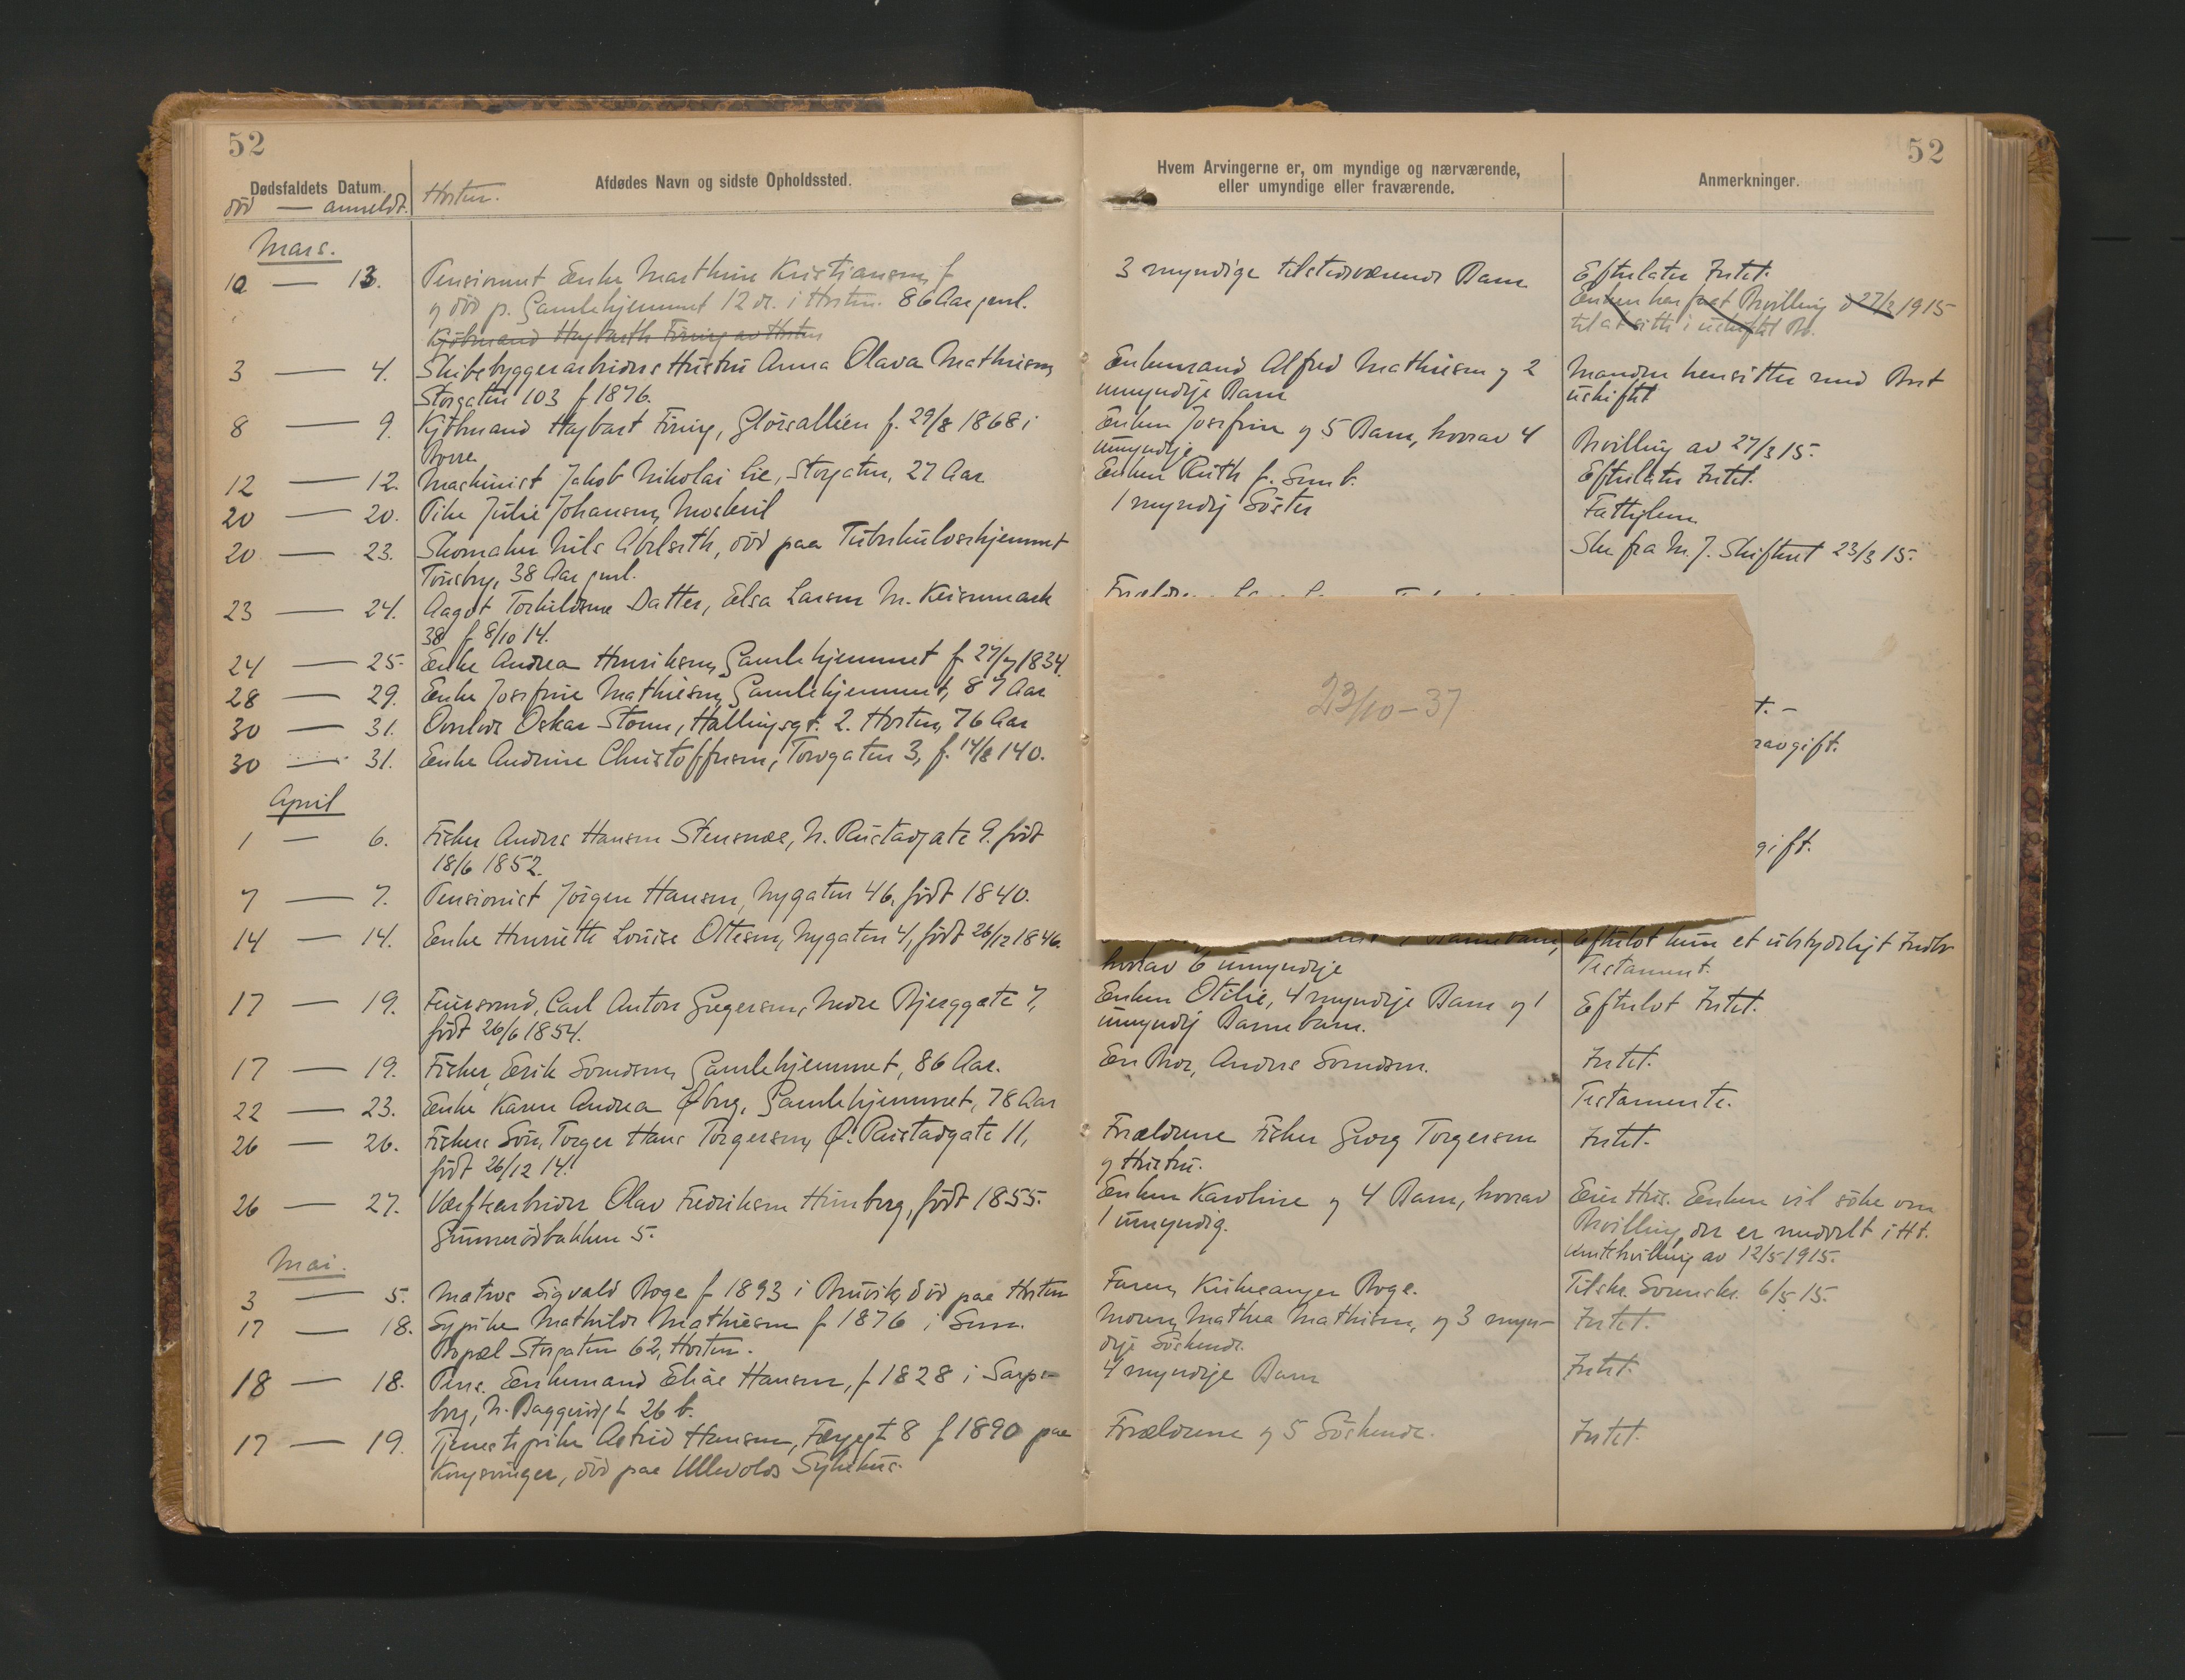 52
52
Dødsfaldets Datum.
død — anmeldt.
Horten.
Afdødes Navn og sidste Opholdssted.
Hvem Arvingerne er, om myndige og nærværende,
eller umyndige eller fraværende.
Anmerkninger.
Mars.
10 — 13. Pensionnert Enke Marthine Kristiansen, f
og død p. Gamlehjemmet 12 ds. i Horten. 86 Aar gml.
3 myndige tilstedeværende Barn
Efterlater Intet.
Enken har faat Bevilling d 27/3 1915
til at sitte i uskiftet Bo.
Kjøbmand Hagbarth Firing av Horten
3 — 4. Skibsbyggerarbeiders Hustru Anna Olava Mathiesen,
Storgaten 103 f 1876.
Enkemand Alfred Mathiesen og 2
umyndige Barn
Manden hensitter med Boet
uskiftet
8 — 9. Kjøbmand Hagbart Firing, Gloisalleen f. 29/8 1868 i
Borre
Enken Josefine og 5 Barn, hvorav 4
umyndige
Bevilling av 27/3 15.
12 — 12. Maskinist Jakob Nikolai Lie, Storgaten, 27 Aar
Enken Ruth f. Sem b.
Efterlater Intet.
20 — 20. Pike Julie Johansen, Moskeil
1 myndig Søster
Fattiglem
20 — 23. Skomaker Nils Abelseth, død paa Tuberkulosehjemmet
Tønsberg, 38 Aar gml.
Skr fra M. J. Skifteret 23/3 15.
23 — 24. Aagot Torkildsens Datter, Elsa Larsen N. Keisemark
38 f 8/10 14.
24 — 25. Enke Andrea Henriksen, Gamlehjemmet f 27/7 1834.
28 — 29. Enke Josefine Mathiesen, Gamlehjemmet, 87 Aar
30 — 31. Overlods Oskar Storm, Hallingsgt. 2. Horten, 76 Aar
t. –
30 — 31. Enke Andrine Christoffersen, Torvgaten 3, f. 14/8 140.
ravgift.
23/10–37
April
1 — 6. Fisker Anders Hansen Stensnæs, N. Rustadgate 9. født
18/6 1852.
gift.
7 — 7. Pensionist Jørgen Hansen, Nygaten 46, født 1840.
14 — 14. Enke Henriette Louise Ottesen, Nygaten 4, født 26/12 1846.
Barnebarn,
hvorav 6 umyndige
Efterlot kun et ubetydeligt Indbo
Testament.
17 — 19. Feiersvend, Carl Anton Gregersen, Nedre Bjerggate 7,
født 26/6 1854.
Enken Otilie, 4 myndige Barn og 1
umyndig Barnebarn.
Efterlot Intet.
17 — 19. Fisker, Erik Svendsen, Gamlehjemmet, 86 Aar.
En Bror, Anders Svendsen.
Intet.
22 — 23. Enke Karen Andrea Øberg, Gamlehjemmet, 78 Aar
Testamente.
26 — 26. Fiskers Søn, Torger Hans Torgersen, Ø. Rustadgate 11,
født 26/12 14.
Forældrene Fisker Georg Torgersen
og Hustru.
Intet.
26 — 27. Værftsarbeider Olav Fredriksen Himberg, født 1855.
Gunnerødbakken 5.
Enken Karoline og 4 Barn, hvorav
1 umyndig.
Eier Hus. Enken vil søke om
Bevilling, der er meddelt i Ht.
Amtsbevilling av 12/5 1915.
Mai.
3 — 5. Matros Sigvald Boge f 1893 i Bruvik, død paa Horten
Faren, Kirkesanger Boge.
Tilskr. Sorenskr. 6/5 15.
17 — 18. Sypike Mathilde Mathiesen f 1876 i Sem.
Bopæl Storgaten 62, Horten.
Moren, Mathea Mathiesen, og 3 myn-
dige Søskende.
Intet.
18 — 18. Pens. Enkemand Elias Hansen, f 1828 i Sarps-
borg, N. Baggerødgt 26 b.
4 myndige Barn
Intet.
17 — 19. Tjenestepike Astrid Hansen, Færgegt 8 f 1890 paa
Kongsvinger, død paa Ullevolds Sykehus.
Forældrene og 5 Søskende.
Intet.